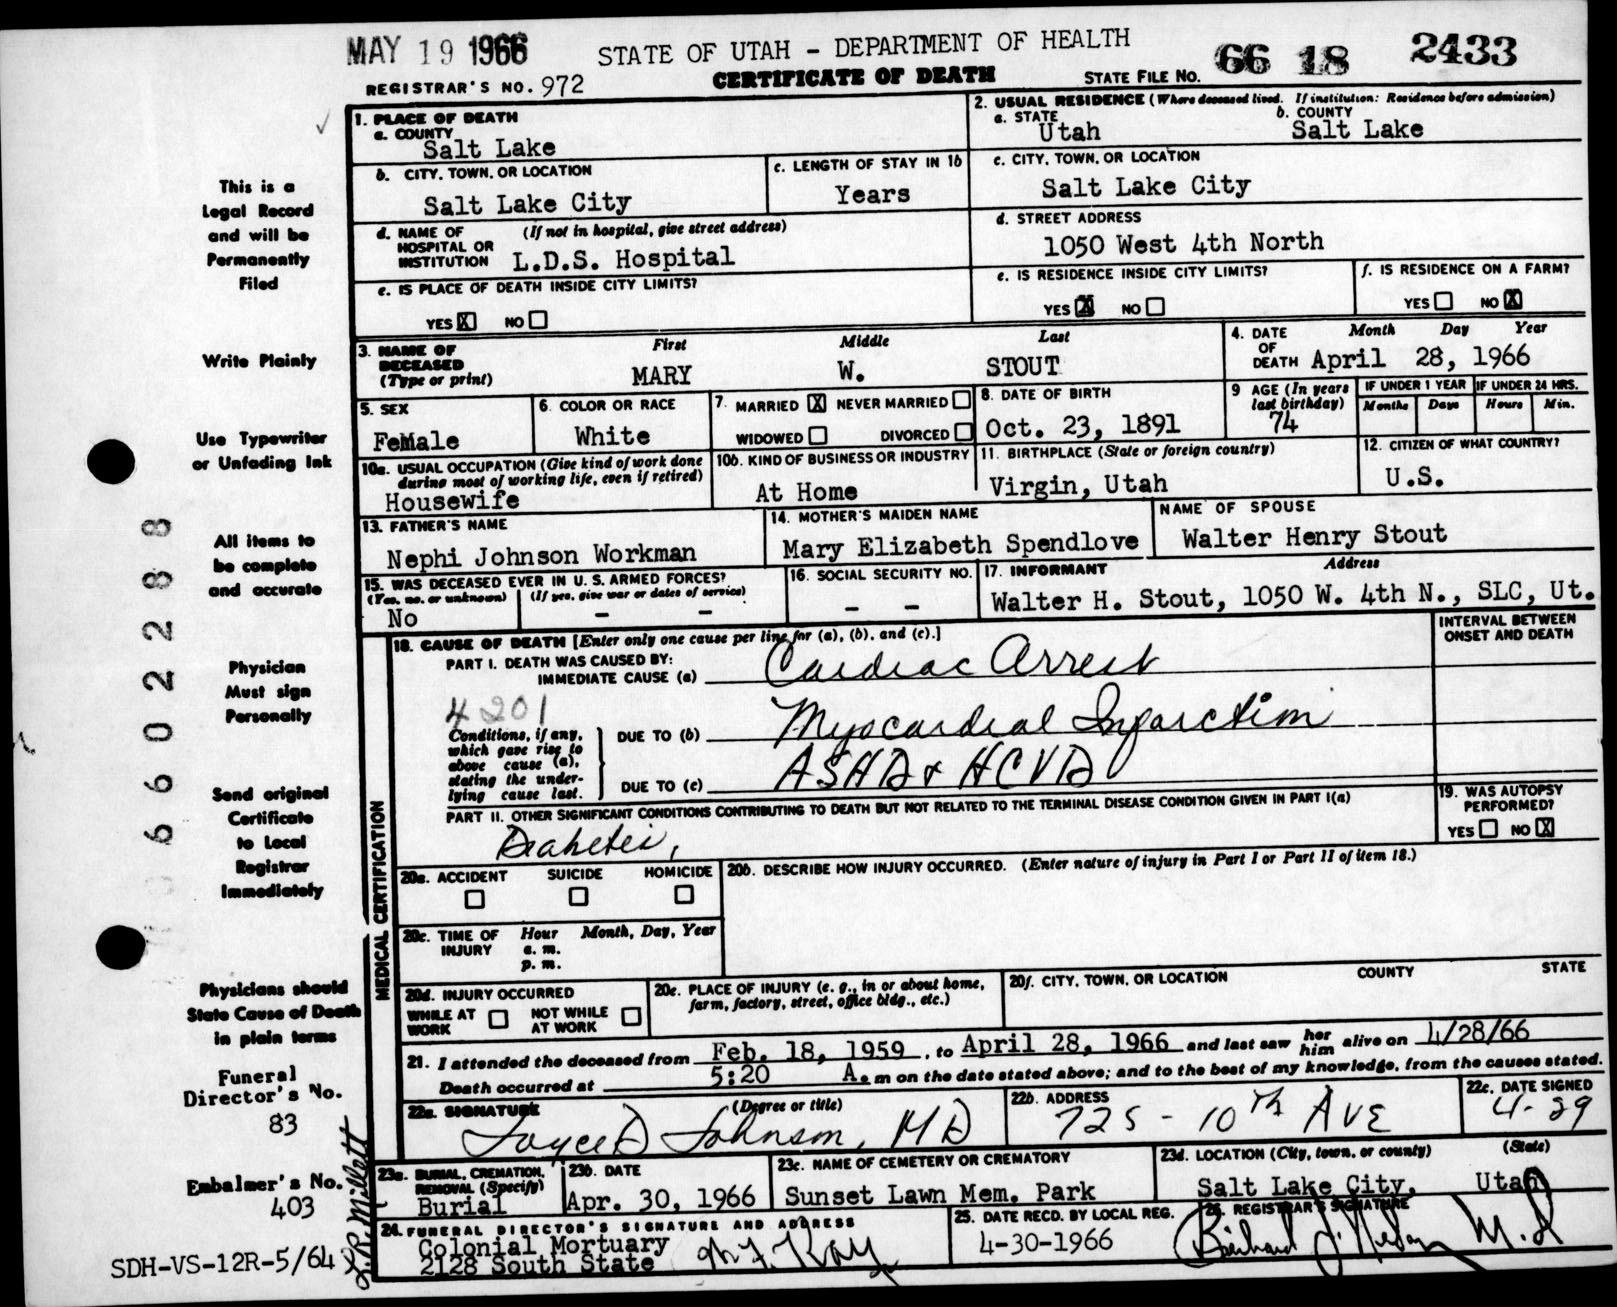 MAY 19 1966 STATE OF UTAH - DEPARTMENT OF HEALTH
REGISTRAR'S NO. 972 CERTIFICATE OF DEATH STATE FILE NO. 66 18 2433
1. PLACE OF DEATH
a. COUNTY
Salt Lake
2. USUAL RESIDENCE (Where deceased lived. If institution: Residence before admission)
a. STATE b. COUNTY
Utah Salt Lake
b. CITY, TOWN, OR LOCATION
Salt Lake City
c. LENGTH OF STAY IN 1b
Years
c. CITY, TOWN, OR LOCATION
Salt Lake City
d. NAME OF (If not in hospital, give street address)
HOSPITAL OR
INSTITUTION L.D.S. Hospital
d. STREET ADDRESS
1050 West 4th North
e. IS PLACE OF DEATH INSIDE CITY LIMITS?
YES X NO
e. IS RESIDENCE INSIDE CITY LIMITS?
YES X NO
f. IS RESIDENCE ON A FARM?
YES NO X
3. NAME OF First Middle Last
DECEASED
(Type or print) MARY W. STOUT
4. DATE Month Day Year
OF
DEATH April 28, 1966
5. SEX
Female
6. COLOR OR RACE
White
7. MARRIED X NEVER MARRIED
WIDOWED DIVORCED
8. DATE OF BIRTH
Oct. 23, 1891
9 AGE (In years
last birthday)
74
IF UNDER 1 YEAR IF UNDER 24 HRS.
Months Days Hours Min.
10a. USUAL OCCUPATION (Give kind of work done
during most of working life, even if retired)
Housewife
10b. KIND OF BUSINESS OR INDUSTRY
At Home
11. BIRTHPLACE (State or foreign country)
Virgin, Utah
12. CITIZEN OF WHAT COUNTRY?
U.S.
13. FATHER'S NAME
Nephi Johnson Workman
14. MOTHER'S MAIDEN NAME
Mary Elizabeth Spendlove
NAME OF SPOUSE
Walter Henry Stout
15. WAS DECEASED EVER IN U. S. ARMED FORCES?
(Yes, no, or unknown) (If yes, give war or dates of service)
No - -
16. SOCIAL SECURITY NO.
- -
17. INFORMANT Address
Walter H. Stout, 1050 W. 4th N., SLC, Ut.
MEDICAL CERTIFICATION
18. CAUSE OF DEATH [Enter only one cause per line for (a), (b), and (c).]
INTERVAL BETWEEN
ONSET AND DEATH
PART I. DEATH WAS CAUSED BY:
IMMEDIATE CAUSE (a) Cardiac Arrest
4201
Conditions, if any,
which gave rise to
above cause (a),
stating the under-
lying cause last.
DUE TO (b) Myocardial Infarction
DUE TO (c) ASHD & HCVD
PART II. OTHER SIGNIFICANT CONDITIONS CONTRIBUTING TO DEATH BUT NOT RELATED TO THE TERMINAL DISEASE CONDITION GIVEN IN PART I(a)
Diabetes,
19. WAS AUTOPSY
PERFORMED?
YES NO X
20a. ACCIDENT SUICIDE HOMICIDE
20b. DESCRIBE HOW INJURY OCCURRED. (Enter nature of injury in Part I or Part II of item 18.)
20c. TIME OF Hour Month, Day, Year
INJURY a. m.
p. m.
20d. INJURY OCCURRED
WHILE AT NOT WHILE
WORK AT WORK
20e. PLACE OF INJURY (e. g., in or about home,
farm, factory, street, office bldg., etc.)
20f. CITY, TOWN, OR LOCATION COUNTY STATE
21. I attended the deceased from Feb. 18, 1959, to April 28, 1966 and last saw her him alive on 4/28/66
Death occurred at 5:20 A. m on the date stated above; and to the best of my knowledge, from the causes stated.
22a. SIGNATURE (Degree or title)
Joyce D Johnson, MD
22b. ADDRESS
725 - 10th AVE
22c. DATE SIGNED
4-29
23a. BURIAL, CREMATION,
REMOVAL (Specify)
Burial
23b. DATE
Apr. 30, 1966
23c. NAME OF CEMETERY OR CREMATORY
Sunset Lawn Mem. Park
23d. LOCATION (City, town, or county) (State)
Salt Lake City, Utah
24. FUNERAL DIRECTOR'S SIGNATURE AND ADDRESS
Colonial Mortuary
2128 South State
25. DATE RECD. BY LOCAL REG.
4-30-1966
26. REGISTRAR'S SIGNATURE
M.D
This is a
Legal Record
and will be
Permanently
Filed
Write Plainly
Use Typewriter
or Unfading Ink
All items to
be complete
and accurate
Physician
Must sign
Personally
Send original
Certificate
to Local
Registrar
Immediately
Physicians should
State Cause of Death
in plain terms
Funeral
Director's No.
83
Embalmer's No.
403
L.R. Millett
SDH-VS-12R-5/64
6602288